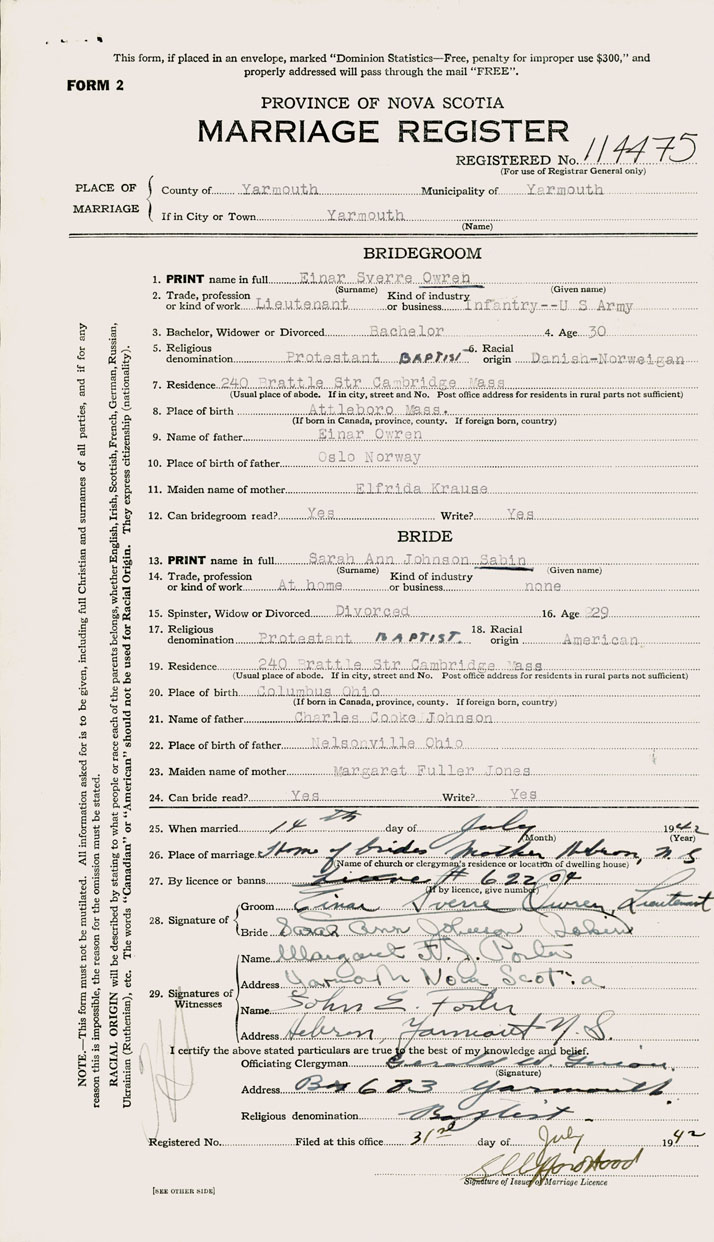 This form, if placed in an envelope, marked "Dominion Statistics—Free, penalty for improper use $300," and
properly addressed will pass through the mail "FREE".
FORM 2
PROVINCE OF NOVA SCOTIA
MARRIAGE REGISTER
REGISTERED No. 114475
(For use of Registrar General only)
PLACE OF MARRIAGE
County of Yarmouth Municipality of Yarmouth
If in City or Town Yarmouth
(Name)
BRIDEGROOM
1. PRINT name in full Einar Sverre Owren
(Surname) (Given name)
2. Trade, profession or kind of work Lieutenant Kind of industry or business Infantry--U S Army
3. Bachelor, Widower or Divorced Bachelor 4. Age 30
5. Religious denomination Protestant BAPTIST 6. Racial origin Danish-Norweigan
7. Residence 240 Brattle Str Cambridge Mass
(Usual place of abode. If in city, street and No. Post office address for residents in rural parts not sufficient)
8. Place of birth Attleboro Mass.
(If born in Canada, province, county. If foreign born, country)
9. Name of father Einar Owren
10. Place of birth of father Oslo Norway
11. Maiden name of mother Elfrida Krause
12. Can bridegroom read? Yes Write? Yes
BRIDE
13. PRINT name in full Sarah Ann Johnson Sabin
(Surname) (Given name)
14. Trade, profession or kind of work At home Kind of industry or business none
15. Spinster, Widow or Divorced Divorced 16. Age 29
17. Religious denomination Protestant BAPTIST. 18. Racial origin American
19. Residence 240 Brattle Str Cambridge Mass
(Usual place of abode. If in city, street and No. Post office address for residents in rural parts not sufficient)
20. Place of birth Columbus Ohio
(If born in Canada, province, county. If foreign born, country)
21. Name of father Charles Cooke Johnson
22. Place of birth of father Nelsonville Ohio
23. Maiden name of mother Margaret Fuller Jones
24. Can bride read? Yes Write? Yes
25. When married 14th day of July 1942
(Month) (Year)
26. Place of marriage Home of brides Mother Hebron, N S
(Name of church or clergyman's residence or location of dwelling house)
27. By licence or banns License # 62204
(If by licence, give number)
28. Signature of
Groom Einar Sverre Owren, Lieutenant
Bride Sarah Ann Johnson Sabin
29. Signatures of Witnesses
Name Margaret F. J. Porter
Address Yarmouth Nova Scotia
Name John E.
Address Hebron, Yarmouth N.S.
I certify the above stated particulars are true to the best of my knowledge and belief.
Officiating Clergyman Gerald W.
(Signature)
Address Box 683 Yarmouth.
Religious denomination Baptist.
Registered No. Filed at this office 31st day of July 1942
Signature of Issuer of Marriage Licence
[SEE OTHER SIDE]
NOTE.—This form must not be mutilated. All information asked for is to be given, including full Christian and surnames of all parties, and if for any
reason this is impossible, the reason for the omission must be stated.
RACIAL ORIGIN will be described by stating to what people or race each of the parents belongs, whether English, Irish, Scottish, French, German, Russian,
Ukrainian (Ruthenian), etc. The words "Canadian" or "American" should not be used for Racial Origin. They express citizenship (nationality).